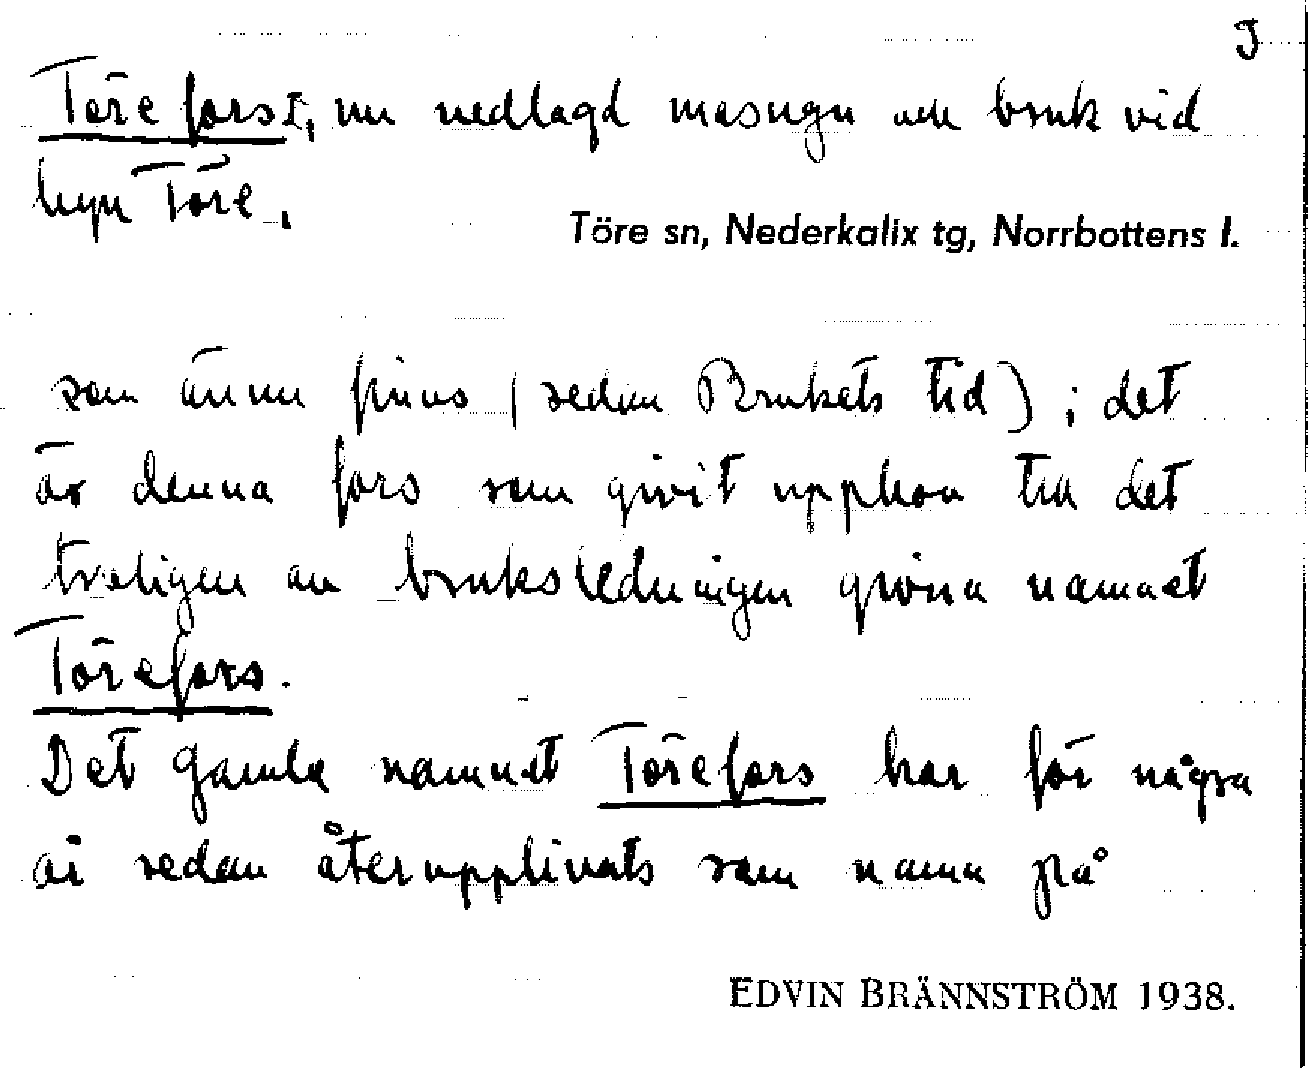 J
Törefors I, nu nedlagd masugn och bruk vid
byn Töre.
Töre sn, Nederkalix tg, Norrbottens l.
som ännu finns (sedan Brukets tid); det
är denna fors som givit upphov till det
troligen av bruksledningen givna namnet
Törefors.
Det gamla namnet Törefors har för några
år sedan återupplivats som namn på
EDVIN BRÄNNSTRÖM 1938.